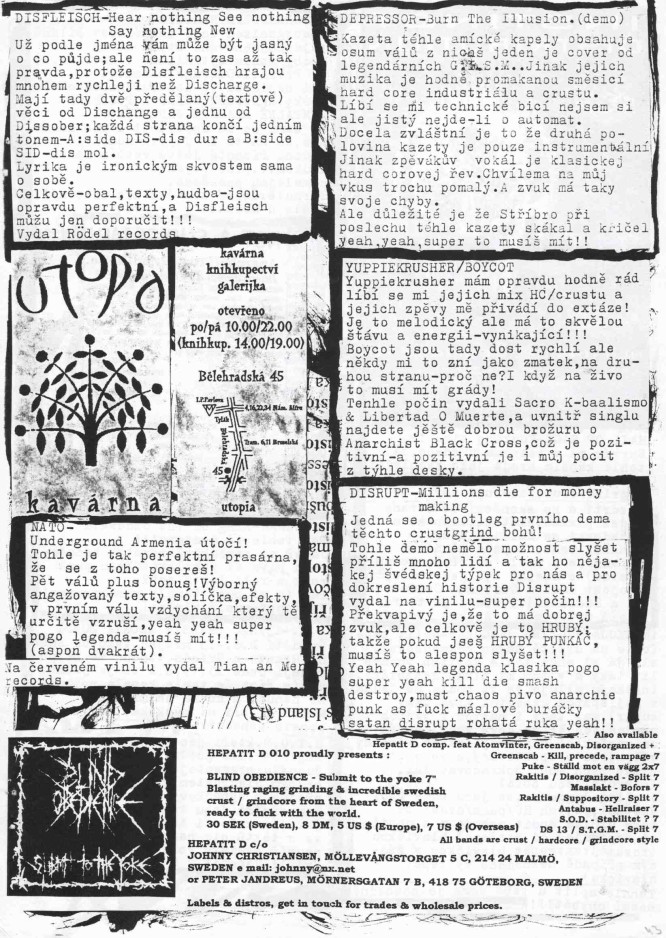 DISFLEISCH-Hear nothing See nothing
Say nothing New
Už podle jména vám může být jasný
o co půjde;ale není to zas až tak
pravda,protože Disfleisch hrajou
mnohem rychleji než Discharge.
Mají tady dvě předělaný(textově)
věci od Dischange a jednu od
Dissober;každá strana končí jedním
tonem-A:side DIS-dis dur a B:side
SID-dis mol.
Lyrika je ironickým skvostem sama
o sobě.
Celkově-obal,texty,hudba-jsou
opravdu perfektní,a Disfleisch
můžu jen doporučit!!!
Vydal Rödel records
utopia
kavárna
kavárna
knihkupectví
galerijka
otevřeno
po/pá 10.00/22.00
(knihkup. 14.00/19.00)
Bělehradská 45
I.P.Pavlova
4,16,22,34 Nám. Míru
Tylák
Bělehradská
Tram. 6,11 Bruselská
45
utopia
NATO-
Underground Armenia útočí!
Tohle je tak perfektní prasárna,
že se z toho posereš!
Pět válů plus bonus!Výborný
angažovaný texty,solíčka,efekty,
v prvním válu vzdychání který tě
určitě vzruší,yeah yeah super
pogo legenda-musíš mít!!!
(aspon dvakrát).
Na červeném vinilu vydal Tian an Men
records.
DEPRESSOR-Burn The Illusion.(demo)
Kazeta téhle amícké kapely obsahuje
osum válů z nichš jeden je cover od
legendárních G.I.S.M..Jinak jejich
muzika je hodně promakanou směsicí
hard core industriálu a crustu.
Líbí se mi technické bicí nejsem si
ale jistý nejde-li o automat.
Docela zvláštní je to že druhá po-
lovina kazety je pouze instrumentální
Jinak zpěvákův vokál je klasickej
hard corovej řev.Chvílema na můj
vkus trochu pomalý.A zvuk má taky
svoje chyby.
Ale důležité je že Stříbro při
poslechu téhle kazety skákal a kričel
yeah,yeah,super to musíš mít!!
YUPPIEKRUSHER/BOYCOT
Yuppiekrusher mám opravdu hodně rád
líbí se mi jejich mix HC/crustu a
jejich zpěvy mě přivádí do extáze!
Je to melodický ale má to skvělou
štávu a energii-vynikající!!!
Boycot jsou tady dost rychlí ale
někdy mi to zní jako zmatek,na dru-
hou stranu-proč ne?I když na živo
to musí mít grády!
Tenhle počin vydali Sacro K-baalismo
& Libertad O Muerte,a uvnitř singlu
najdete jěště dobrou brožuru o
Anarchist Black Cross,což je pozi-
tivní-a pozitivní je i můj pocit
z týhle desky.
DISRUPT-Millions die for money
making
Jedná se o bootleg prvního dema
těchto crustgrind bohů!
Tohle demo nemělo možnost slyšet
příliš mnoho lidí a tak ho něja-
kej švédskej týpek pro nás a pro
dokreslení historie Disrupt
vydal na vinilu-super počin!!!
Překvapivý je,že to má dobrej
zvuk,ale celkově je to HRUBÝ,
takže pokud jseš HRUBÝ PUNKÁČ,
musíš to alespon slyšet!!!
Yeah Yeah legenda klasika pogo
super yeah kill die smash
destroy,must chaos pivo anarchie
punk as fuck máslové buráčky
satan disrupt rohatá ruka yeah!!
BLIND
OBEDIENCE
Submit to the Yoke
HEPATIT D 010 proudly presents :
BLIND OBEDIENCE - Submit to the yoke 7"
Blasting raging grinding & incredible swedish
crust / grindcore from the heart of Sweden,
ready to fuck with the world.
30 SEK (Sweden), 8 DM, 5 US $ (Europe), 7 US $ (Overseas)
HEPATIT D c/o
JOHNNY CHRISTIANSEN, MÖLLEVÅNGSTORGET 5 C, 214 24 MALMÖ,
SWEDEN e mail: johnny@nx.net
or PETER JANDREUS, MÖRNERSGATAN 7 B, 418 75 GÖTEBORG, SWEDEN
Labels & distros, get in touch for trades & wholesale prices.
Also available
Hepatit D comp. feat Atomvinter, Greenscab, Disorganized + :
Greenscab - Kill, precede, rampage 7
Puke - Ställd mot en vägg 2x7
Rakitis / Disorganized - Split 7
Masslakt - Bofors 7
Rakitis / Suppository - Split 7
Antabus - Hellraiser 7
S.O.D. - Stabilitet ? 7
DS 13 / S.T.G.M. - Split 7
All bands are crust / hardcore / grindcore style
43